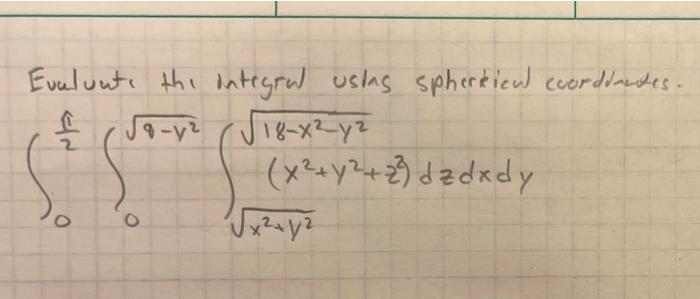 Evaluate the integral using spherical coordinates.
∫₀^(π/2) ∫₀^(√(9-y²)) ∫_(√(x²+y²))^(√(18-x²-y²)) (x²+y²+z²) dz dx dy